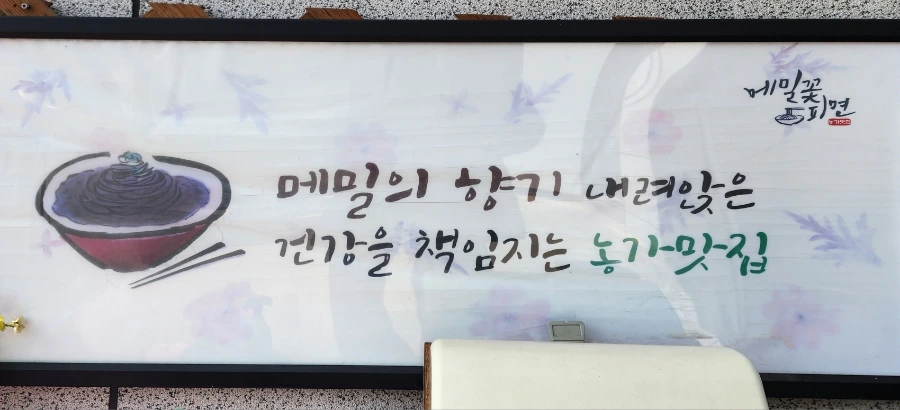 메밀꽃
피면
메밀의 향기 내려앉은
건강을 책임지는 농가맛집